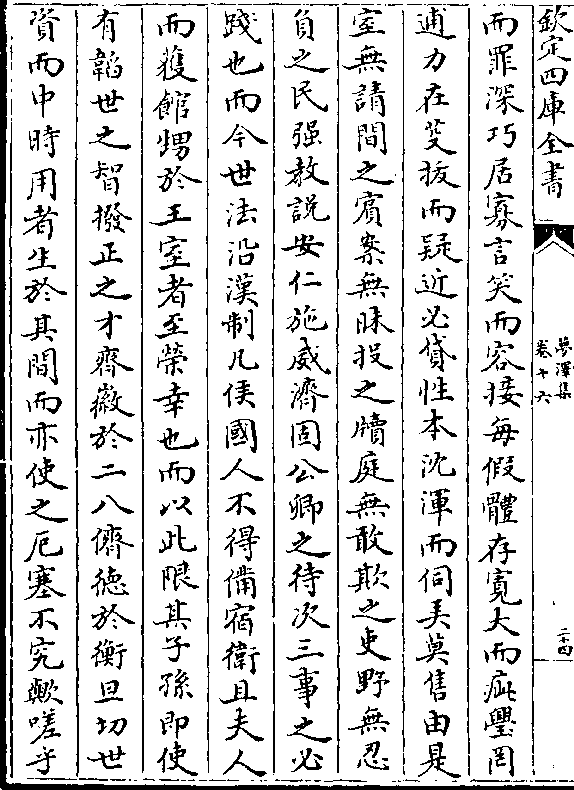 欽定四庫全書
夢澤集
卷十六
二十四
而罪深巧居寡言笑而容接每假體存寛大而疵璺罔
逋力在芟抜而疑近必貸性本沈渾而伺美莫售由是
室無請間之賓案無昧投之牘庭無敢欺之吏野無忍
負之民强教說安仁施威濟固公卿之待次三事之必
踐也而今世法沿漢制凡侯國人不得備宿衛且夫人
而獲館甥於王室者至榮幸也而以此限其子孫即使
有韜世之智撥正之才齊徽於二八儕德於衡旦切世
資而中時用者生於其間而亦使之厄塞不究歟嗟乎